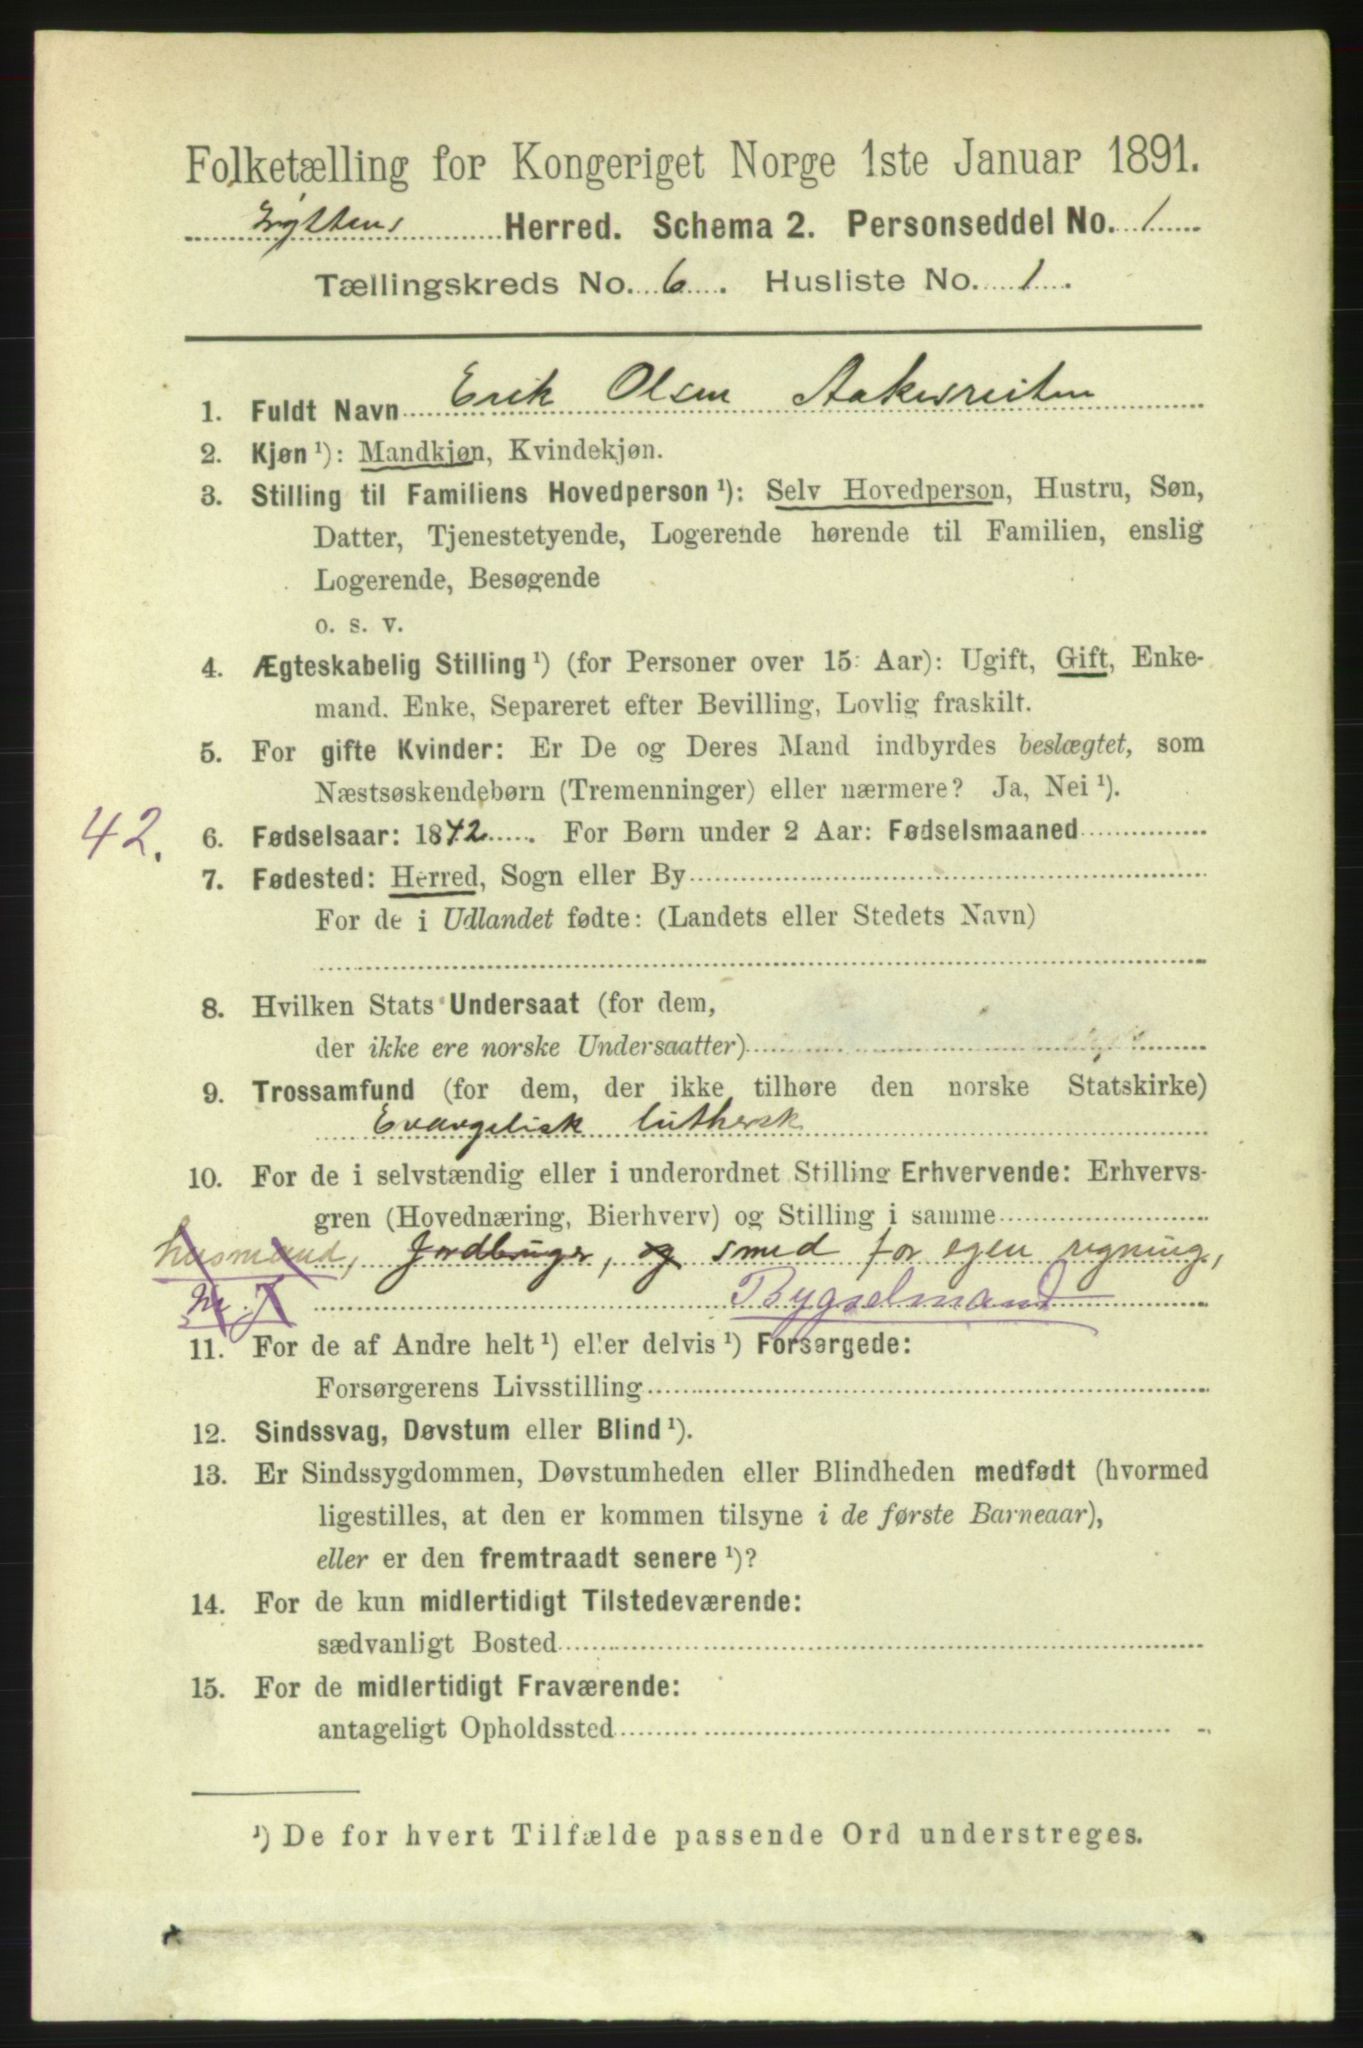 Folketælling for Kongeriget Norge 1ste Januar 1891.
Gryttens Herred. Schema 2. Personseddel No. 1
Tællingskreds No. 6. Husliste No. 1.
1. Fuldt Navn Erik Olsen Aakesreiten
2. Kjøn ¹): Mandkjøn, Kvindekjøn.
3. Stilling til Familiens Hovedperson ¹): Selv Hovedperson, Hustru, Søn,
Datter, Tjenestetyende, Logerende hørende til Familien, enslig
Logerende, Besøgende
o. s. v.
4. Ægteskabelig Stilling ¹) (for Personer over 15 Aar): Ugift, Gift, Enke-
mand. Enke, Separeret efter Bevilling, Lovlig fraskilt.
5. For gifte Kvinder: Er De og Deres Mand indbyrdes beslægtet, som
Næstsøskendebørn (Tremenninger) eller nærmere? Ja, Nei ¹).
42. 6. Fødselsaar: 1842. For Børn under 2 Aar: Fødselsmaaned
7. Fødested: Herred, Sogn eller By
For de i Udlandet fødte: (Landets eller Stedets Navn)
8. Hvilken Stats Undersaat (for dem,
der ikke ere norske Undersaatter)
9. Trossamfund (for dem, der ikke tilhøre den norske Statskirke)
Evangelisk luthersk
10. For de i selvstændig eller i underordnet Stilling Erhvervende: Erhvervs-
gren (Hovednæring, Bierhverv) og Stilling i samme
husmand, Jordbruger, og smed for egen regning,
m. J Bygselmand
11. For de af Andre helt ¹) eller delvis ¹) Forsørgede:
Forsørgerens Livsstilling
12. Sindssvag, Døvstum eller Blind ¹).
13. Er Sindssygdommen, Døvstumheden eller Blindheden medfødt (hvormed
ligestilles, at den er kommen tilsyne i de første Barneaar),
eller er den fremtraadt senere ¹)?
14. For de kun midlertidigt Tilstedeværende:
sædvanligt Bosted
15. For de midlertidigt Fraværende:
antageligt Opholdssted
¹) De for hvert Tilfælde passende Ord understreges.